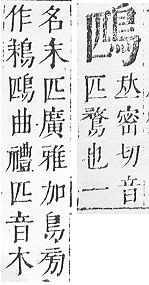 鴄
密切音
匹鶩也一
名末匹廣雅加鳥旁
作䳱鴄曲禮匹音木